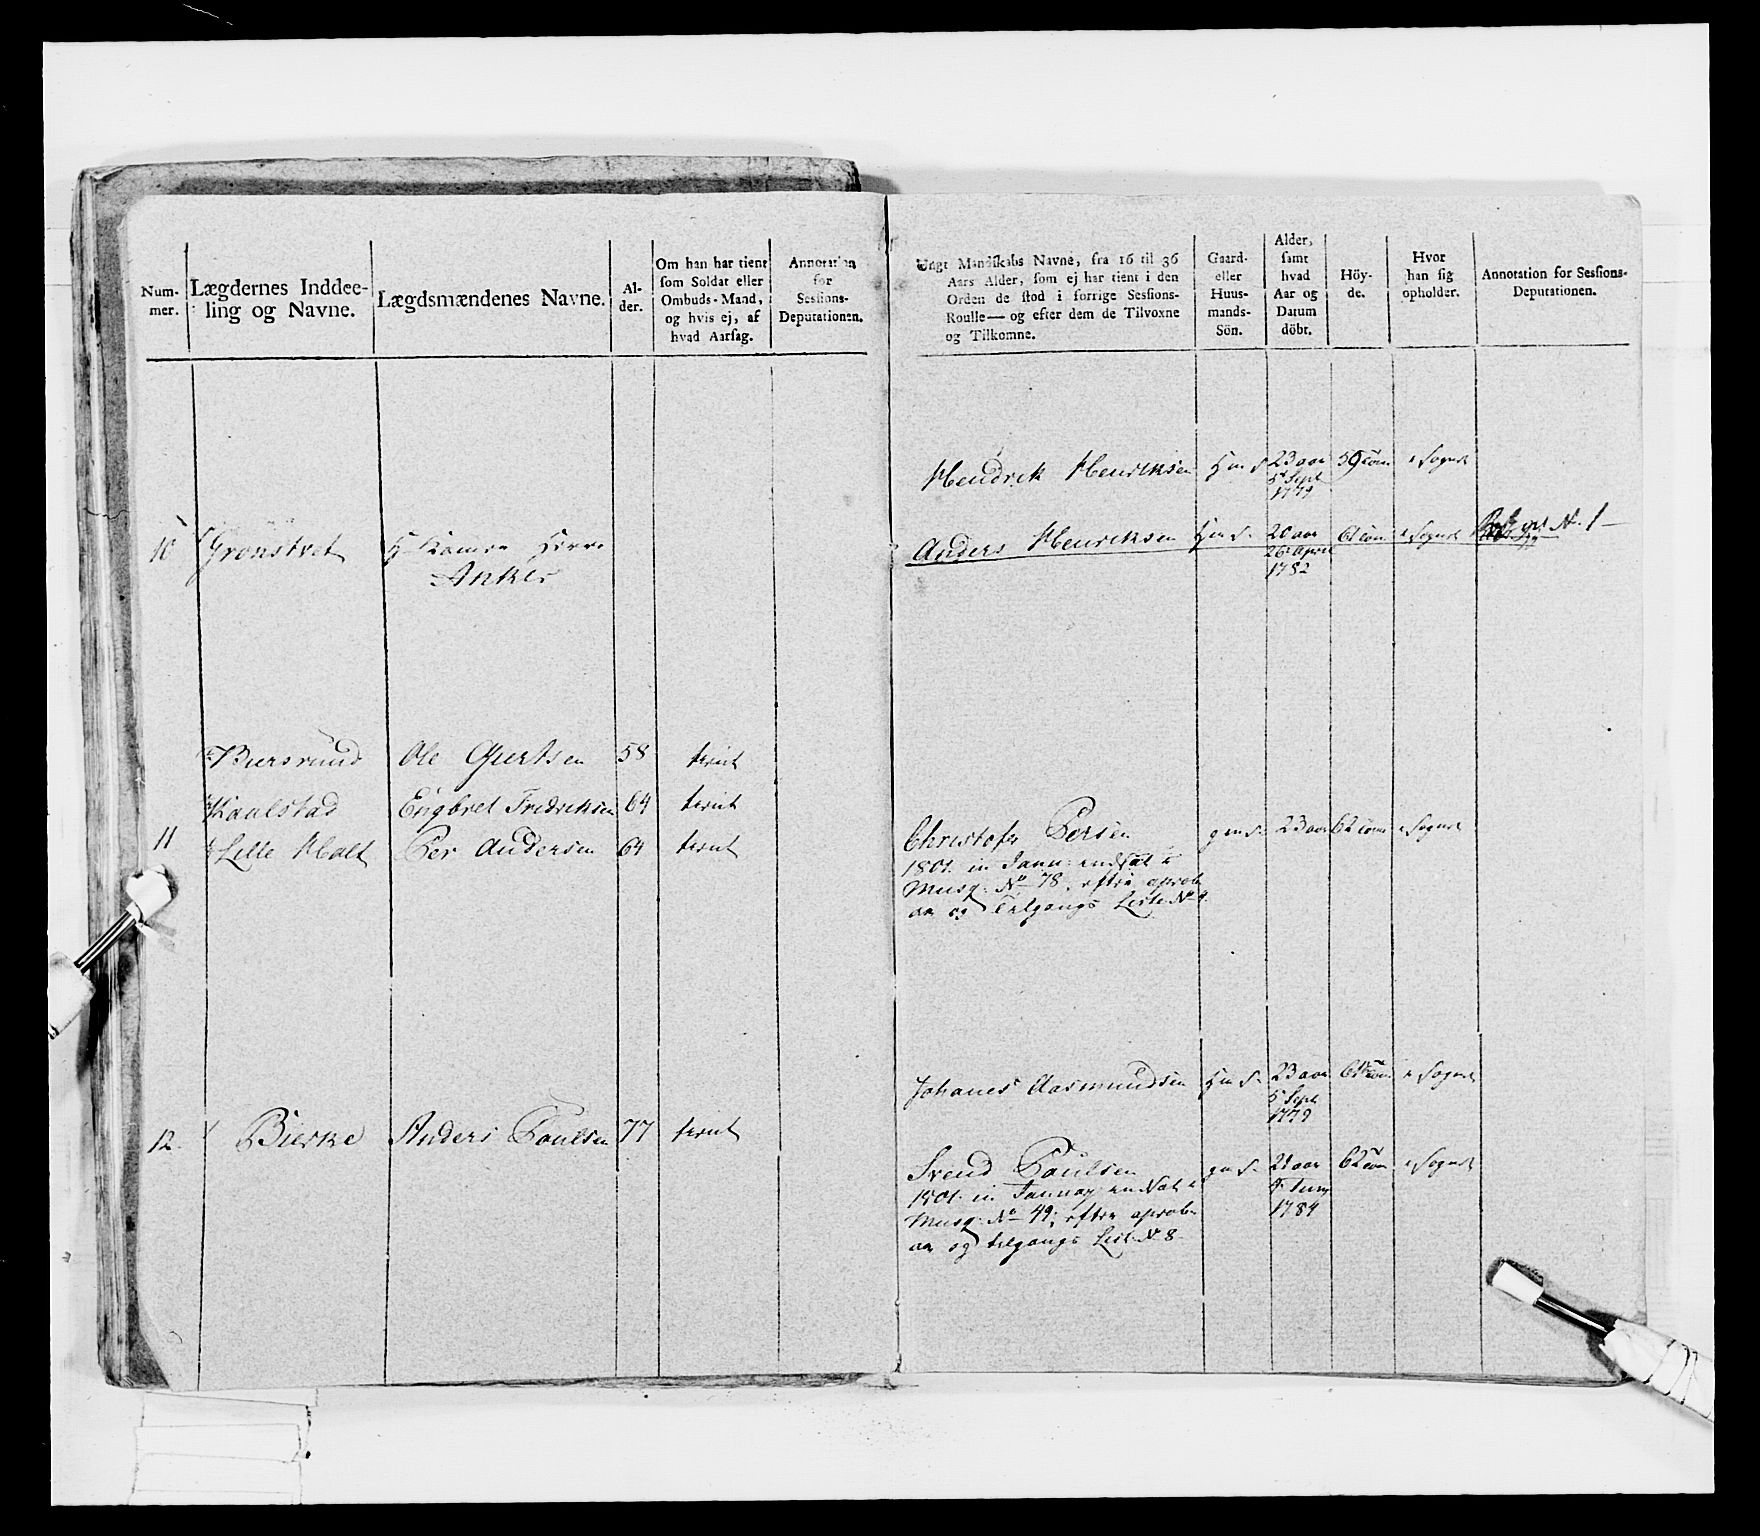 Num-
mer.
Lægdernes Inddee-
ling og Navne.
Lægdsmændenes Navne.
Al-
der.
Om han har tient
som Soldat eller
Ombuds-Mand,
og hvis ej, af
hvad Aarsag.
Annotation
for
Sessions-
Deputationen.
10 Grønstvet
Kammer Herre
Anker
Biersrund Ole Giertsen 58 tient
Kaalstad Engbret Fredriksen 64 tient
11 Lille Holt Per Andersen 64 tient
12. Bierke Anders Poulsen 77 tient
Ungt Mandskabs Navne, fra 16 til 36
Aars Alder, som ej har tient i den
Orden de stod i forrige Sessions-
Roulle— og efter dem de Tilvoxne
og Tilkomne.
Gaard-
eller
Huus-
mands-
Sön.
Alder,
samt
hvad
Aar og
Datum
döbt.
Höy-
de.
Hvor
han sig
opholder.
Annotation for Sessions-
Deputationen.
Hendrik Henriksen H m S 23 aar 59 tom i Sognet
5 Sept
1779
Anders Henriksen H m S. 20 aar 61 tom i Sognet No. 1
26 April
1782
Christofer Persen g m S. 23 aar 62 tom i Sognet
1801. in Janu: indsat i
Musq: No 78. efter
og Tilgangs Liste No 9.
Johanes Aasmundsen H m S. 23 aar tom i Sognet
5 Sept
1779
Svend Poulsen g m S. 21 aar 62 tom i Sognet
1801. in Januay indsat i
Musq: No 49; efter
og tilgangs List No 8
1784